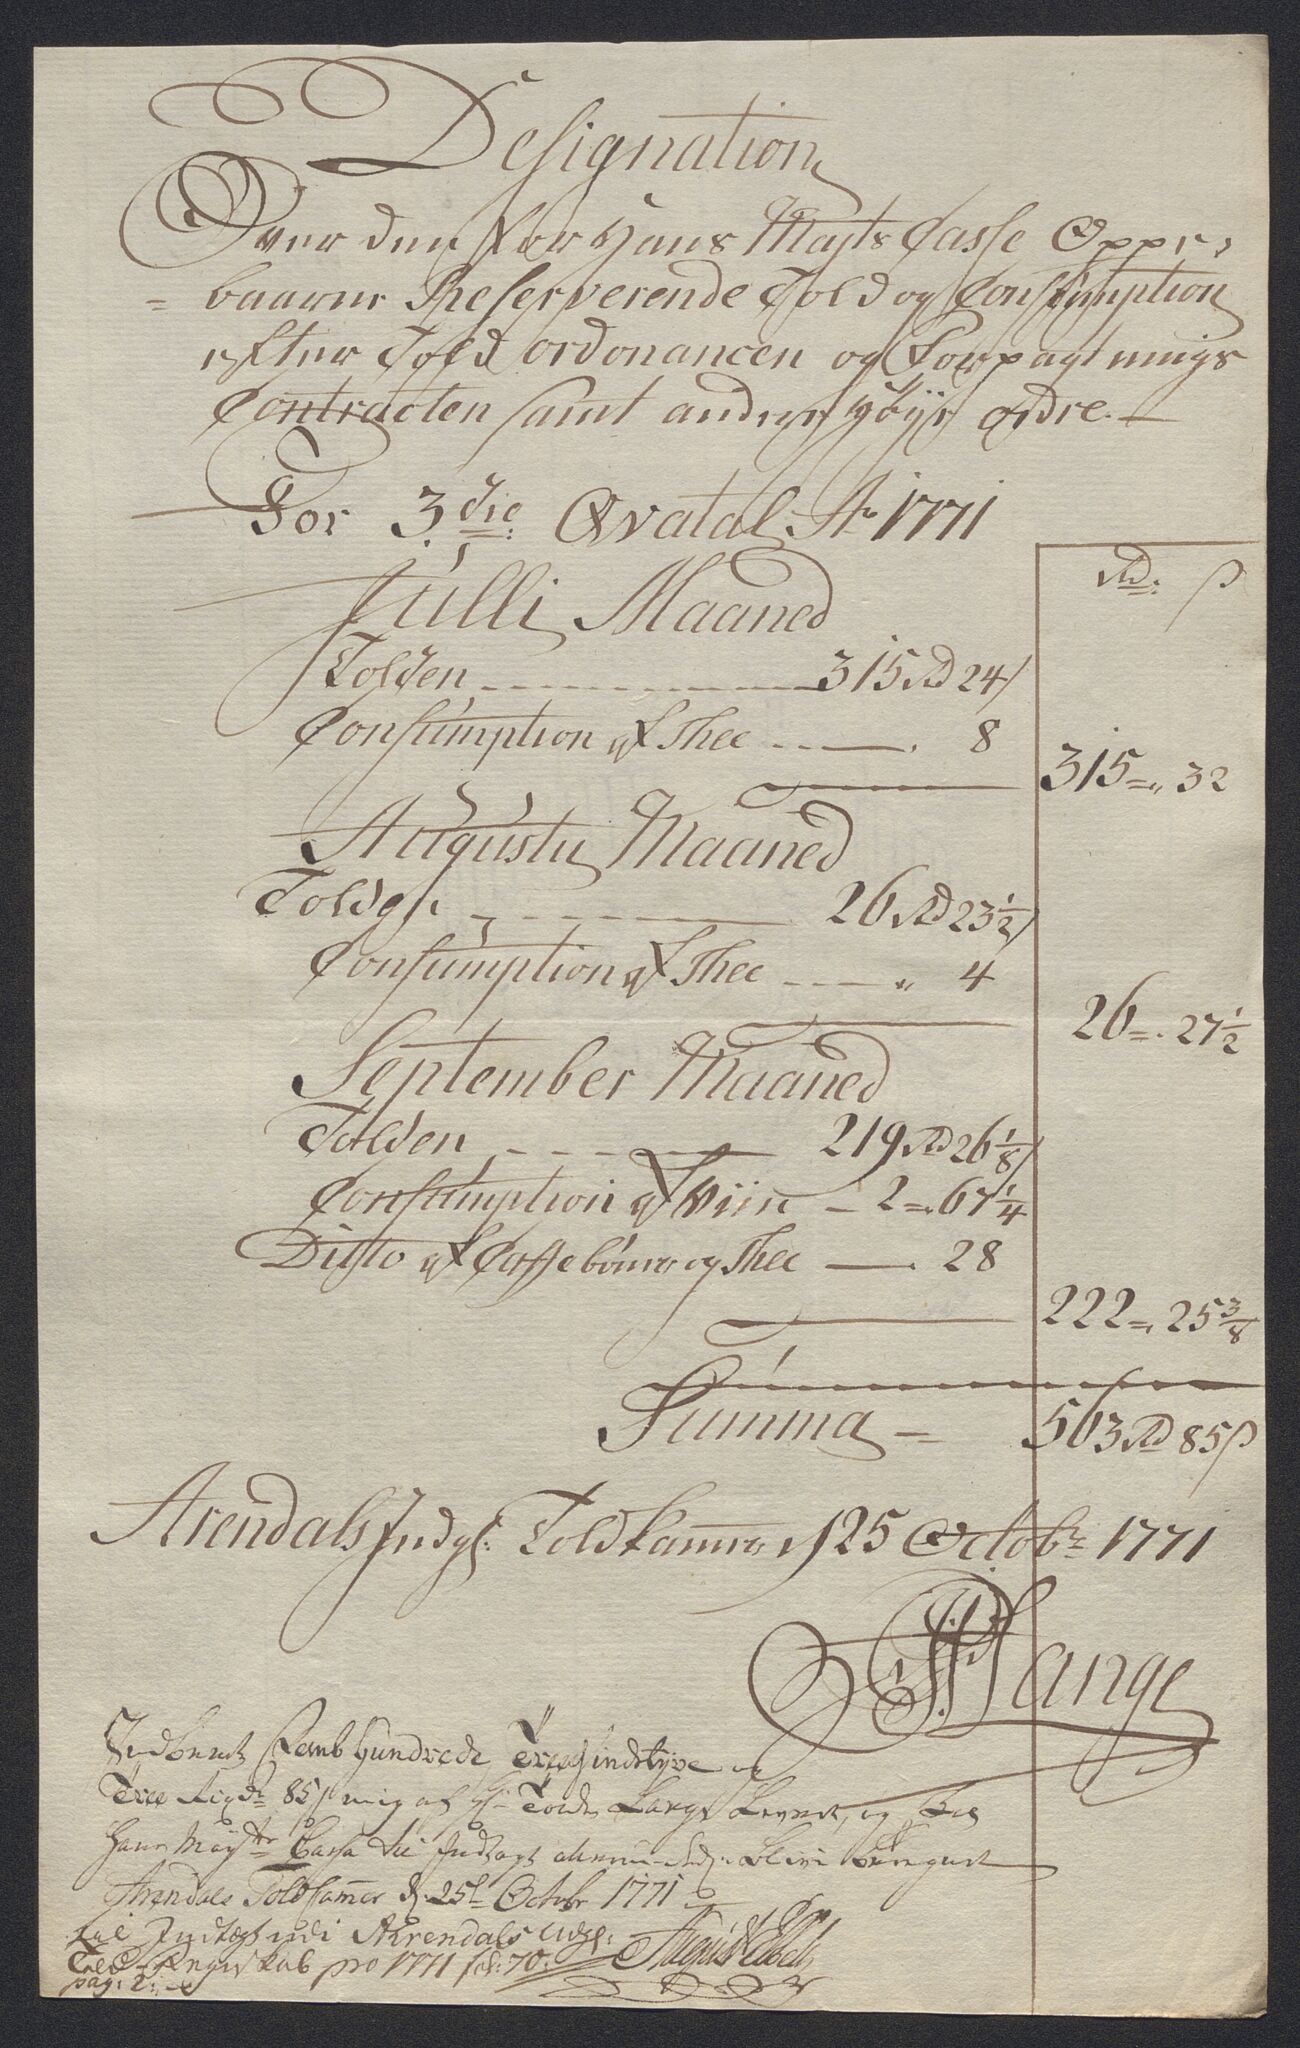 Designation
Over den for Hans Mayts Casse Oppe-
= baarne Reserverende Told og Consumption
efter Told ordonancen og Forpagtnings
Contracten samt andre høye ordre.
For 3die Qvatal Ao 1771
Rd: ß
Julli Maaned
Tolden 315 Rd 24 ß
Consumption af Thee 8
315 = „ 32
Augustu Maaned
Tolden 26 Rd 23 1/2 ß
Consumption af Thee „ 4
26 = „ 27 1/2
September Maaned
Tolden 219 Rd 26 1/8 ß
Consumption af Viin 2 = „ 67 1/4
Ditto af Caffebønner og Thee 28
222 = „ 25 3/8
Summa = 563 Rd 85 ß
Arendals Indgl: Toldkammer d 25 Octobr 1771
Lange
Fem Hundrede Tree Sindstyve og
Tree Rigdr 85 ß mig af Hr Tolder Lange og for
Hans Mayts Cassa til Indtægt
Arendals Toldkammer d. 25de Octobr 1771
til Indtægt udi Ahrendals Udgl:
Told Regnskab pro 1771 fol: 70:
pag: 2: